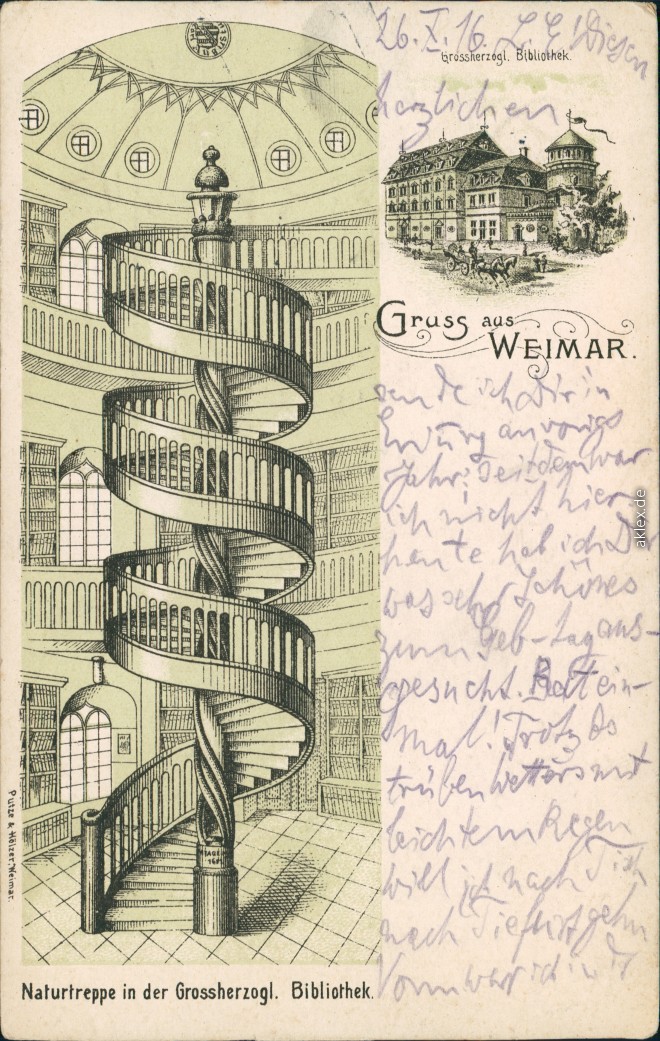 26. X. 16. L. E! Diesen
Grossherzogl. Bibliothek.
herzlichen
Gruss aus
WEIMAR.
sende ich Dir in
an voriges
Jahr. Seitdem war
ich nicht hier
heute hab ich D
was sehr Schönes
zum Geb-tag aus-
gesucht. Rat ein-
mal! Trotz des
trüben Wetters mit
leichtem Regen
will ich nach Tisch
nach Tiefurt gehn
Vorm. war ich in
Putze & Hölzer, Weimar.
Naturtreppe in der Grossherzogl. Bibliothek.
aklex.de